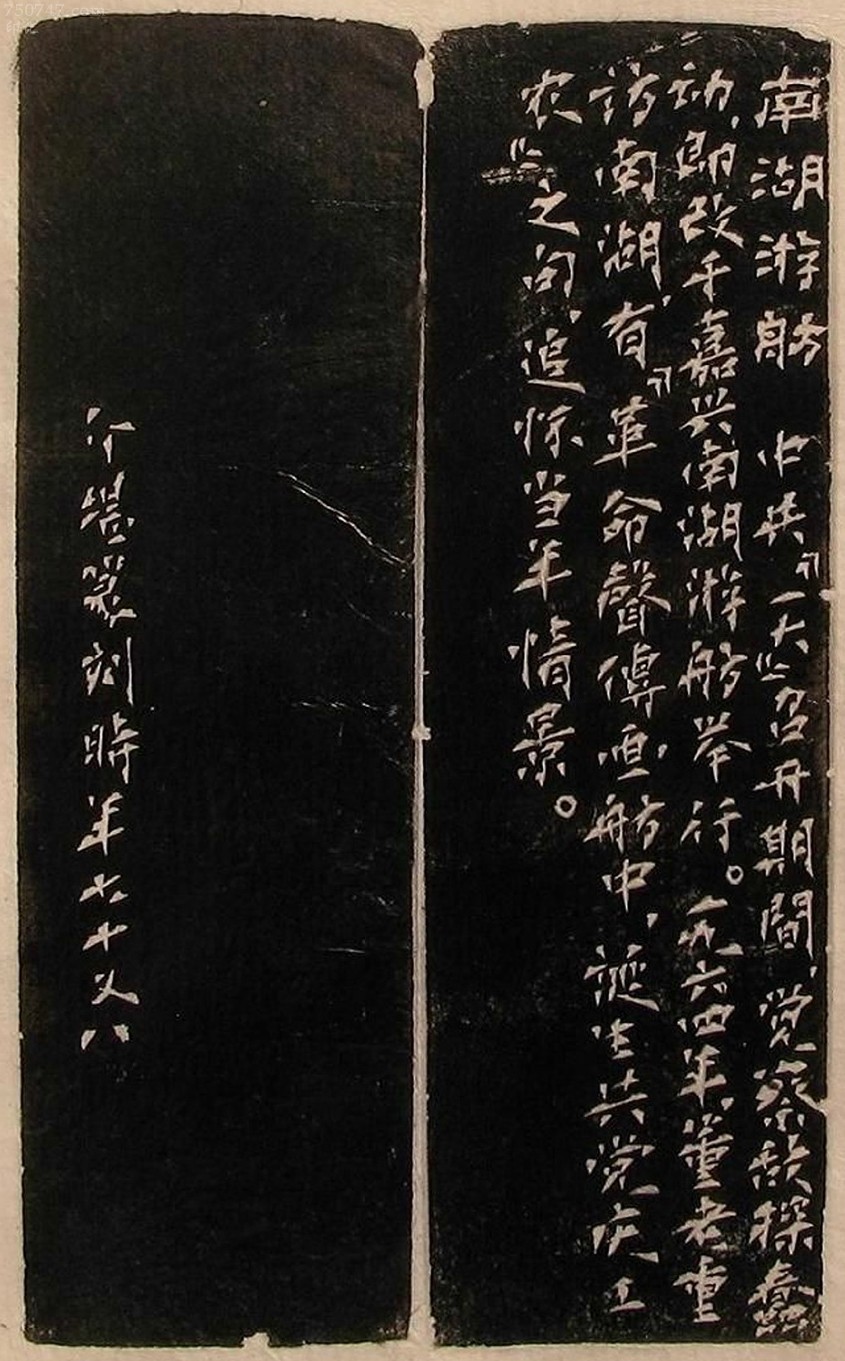 南湖游舫 中央『一大』召开期間，觉察敌探蠢
动，即改于嘉兴南湖游舫举行。一九六四年，董老重
访南湖，有『革命聲傳画舫中，誕生共党庆工
农』之句，追怀当年情景。
方介堪篆刻時年七十又八